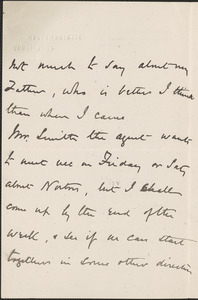 not much to say about my
Father, who is better I think
than when I came
Mr. Smith the agent wants
to meet me on Friday or Saty
about Norton, but I shall
come up by the end of the
week, & see if we can start
together in some other direction